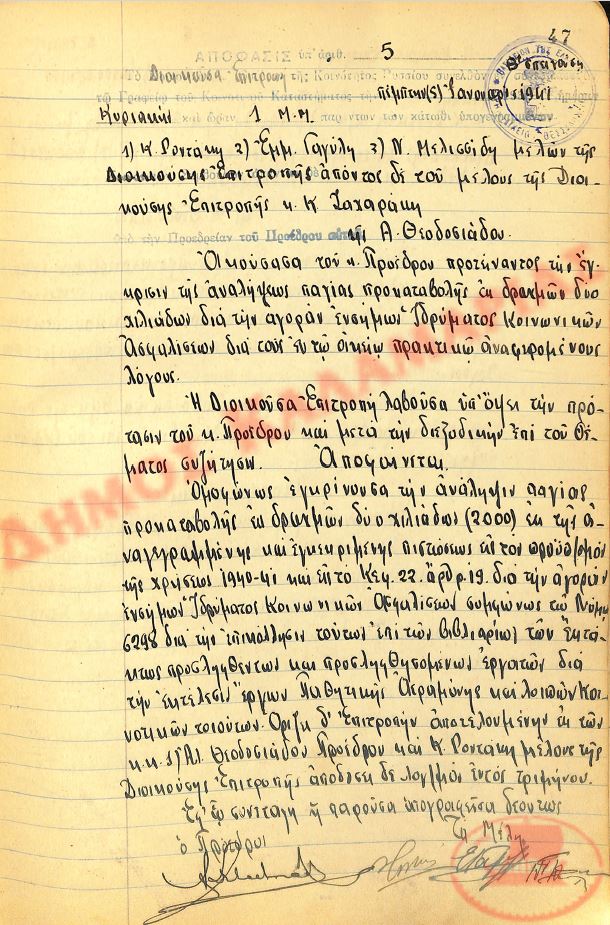 47
ΑΠΟΦΑΣΙΣ ὑπ' ἀριθ. 5 Θεσπεσίση
Τὸ Διοικοῦσα Ἐπιτροπὴ τῆς Κοινότητος Ρυσίου συνελθὸν
τῷ Γραφείῳ τοῦ Κοινοτικοῦ Καταστήματος τὴν πέμπτην (5) Ἰανουαρίου 1941 ἡμέραν
Κυριακὴν καὶ ὥραν 1 Μ.Μ. παρόντων τῶν κάτωθι ὑπογεγραμμένων
1) Κ. Ροντάκη 2) Ἐμμ. Γαγύλη 3) Ν. Μελισσίδη μελῶν τῆς
Διοικούσης Ἐπιτροπῆς ἀπόντος δὲ τοῦ μέλους τῆς Διοι-
κούσης Ἐπιτροπῆς κ. Κ Ζαχαράκη
ὑπὸ τὴν Προεδρείαν τοῦ Προέδρου αὐτῆς Α. Θεοδοσιάδου.
Ἀκούσασα τοῦ κ. Προέδρου προτείναντος τὴν ἔγ-
κρισιν τῆς ἀναλήψεως παγίας προκαταβολῆς ἐκ δραχμῶν δύο
χιλιάδων διὰ τὴν ἀγορὰν ἐνσήμων Ἱδρύματος Κοινωνικῶν
Ἀσφαλίσεων διὰ τοὺς ἐν τῷ οἰκείῳ πρακτικῷ ἀναφερομένους
λόγους.
Ἡ Διοικοῦσα Ἐπιτροπὴ λαβοῦσα ὑπ' ὄψει τὴν πρό-
τασιν τοῦ κ. Προέδρου καὶ μετὰ τὴν διεξοδικὴν ἐπὶ τοῦ θέ-
ματος συζήτησιν. Ἀποφαίνεται
Ὁμοφώνως ἐγκρίνουσα τὴν ἀνάληψιν παγίας
προκαταβολῆς ἐκ δραχμῶν δύο χιλιάδων (2000) ἐκ τῆς ἀ-
ναγεγραμμένης καὶ ἐγκεκριμένης πιστώσεως εἰς τὸν προϋπ/σμὸν
τῆς χρήσεως 1940-41 καὶ ἐπὶ τὸ Κεφ. 22 ἄρθρ. 19. διὰ τὴν ἀγορὰν
ἐνσήμων Ἱδρύματος Κοινωνικῶν Ἀσφαλίσεων συμφώνως τῷ Νόμῳ
6298 διὰ τὴν ἐπικόλλησιν τούτων ἐπὶ τῶν βιβλιαρίων τῶν ἐκτά-
κτως προσληφθέντων καὶ προσληφθησομένων ἐργατῶν διὰ
τὴν ἐκτέλεσιν ἔργων Παθητικῆς Ἀεραμύνης καὶ λοιπῶν Κοι-
νοτικῶν τοιούτων. Ὁρίζει δ' Ἐπιτροπὴν ἀποτελουμένην ἐκ τῶν
κ.κ. 1) Ἀλ. Θεοδοσιάδου Προέδρου καὶ Κ. Ροντάκη μέλους τῆς
Διοικούσης Ἐπιτροπῆς ἀποδόσῃ δὲ λογ/σμὸν ἐντὸς τριμήνου.
Ἐφ' ᾧ συνετάγη ἡ παροῦσα ὑπογραφεῖσα δεόντως
ὁ Πρόεδρος Τὰ Μέλη
ΔΗΜΟΣ ΚΑΛΑΜΑΡΙΑΣ